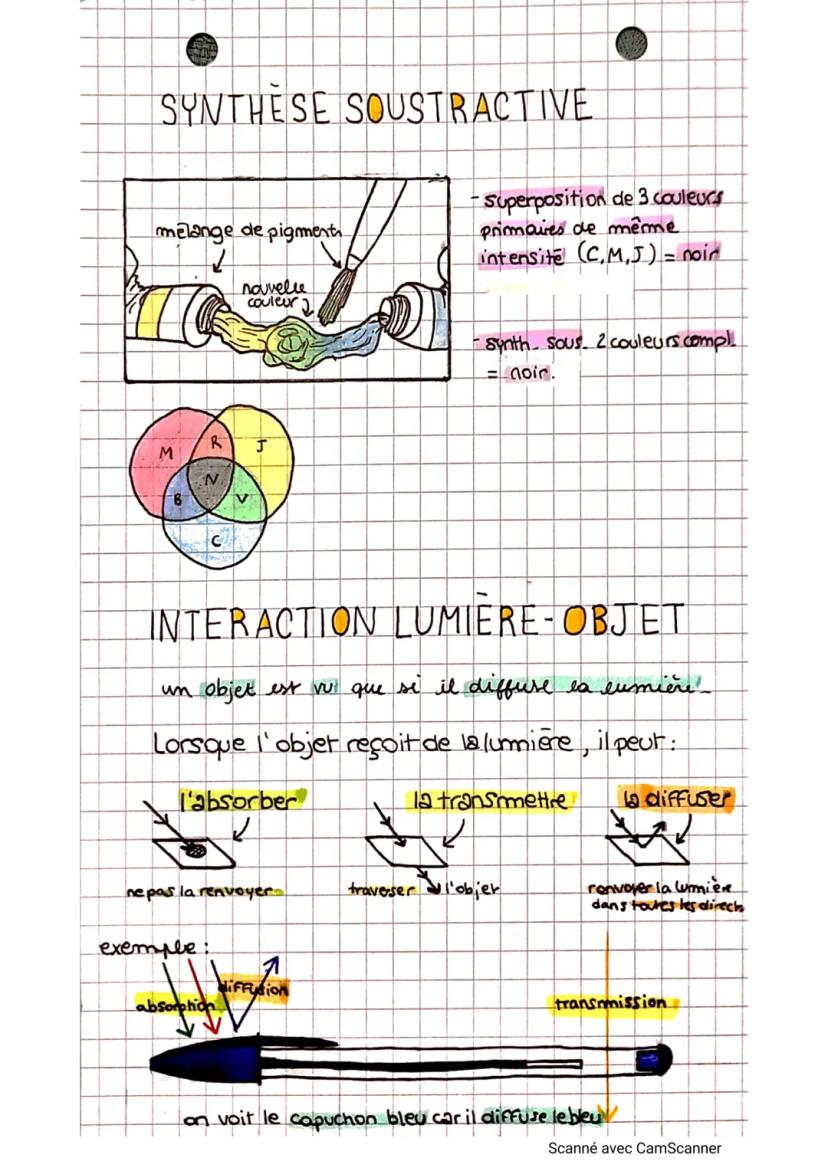 SYNTHÈSE SOUSTRACTIVE
mélange de pigments
nouvelle
couleur
- superposition de 3 couleurs
primaires de même
intensité (C, M, J) = noir
- synth. sous. 2 couleurs compl.
= noir.
M
R
J
N
B
V
C
INTERACTION LUMIÈRE-OBJET
un objet est vu que si il diffuse la lumière.
Lorsque l'objet reçoit de la lumière, il peut :
l'absorber
la transmettre
la diffuser
ne pas la renvoyer
traverser l'objet
renvoyer la lumière
dans toutes les direct.
exemple :
absorption
diffusion
transmission
on voit le capuchon bleu car il diffuse le bleu
Scanné avec CamScanner